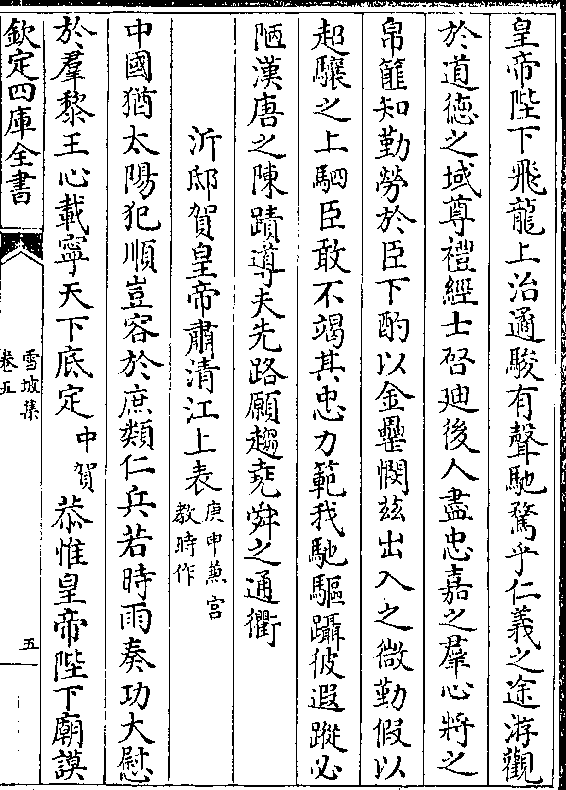 皇帝陛下飛龍上治遹駿有聲馳騖乎仁義之途游觀
於道徳之域尊禮經士啓廸後人盡忠嘉之羣心將之
帛篚知勤勞於臣下酌以金罍憫兹出入之微勤假以
超驤之上駟臣敢不竭其忠力範我馳驅躡彼遐蹤必
陋漢唐之陳蹟導夫先路願趨堯舜之通衢
沂邸賀皇帝肅清江上表庚申兼宫教時作
中國猶太陽犯順豈容於庶類仁兵若時雨奏功大慰
於羣黎王心載寧天下底定中賀恭惟皇帝陛下廟謨
欽定四庫全書
雪坡集
卷五
五